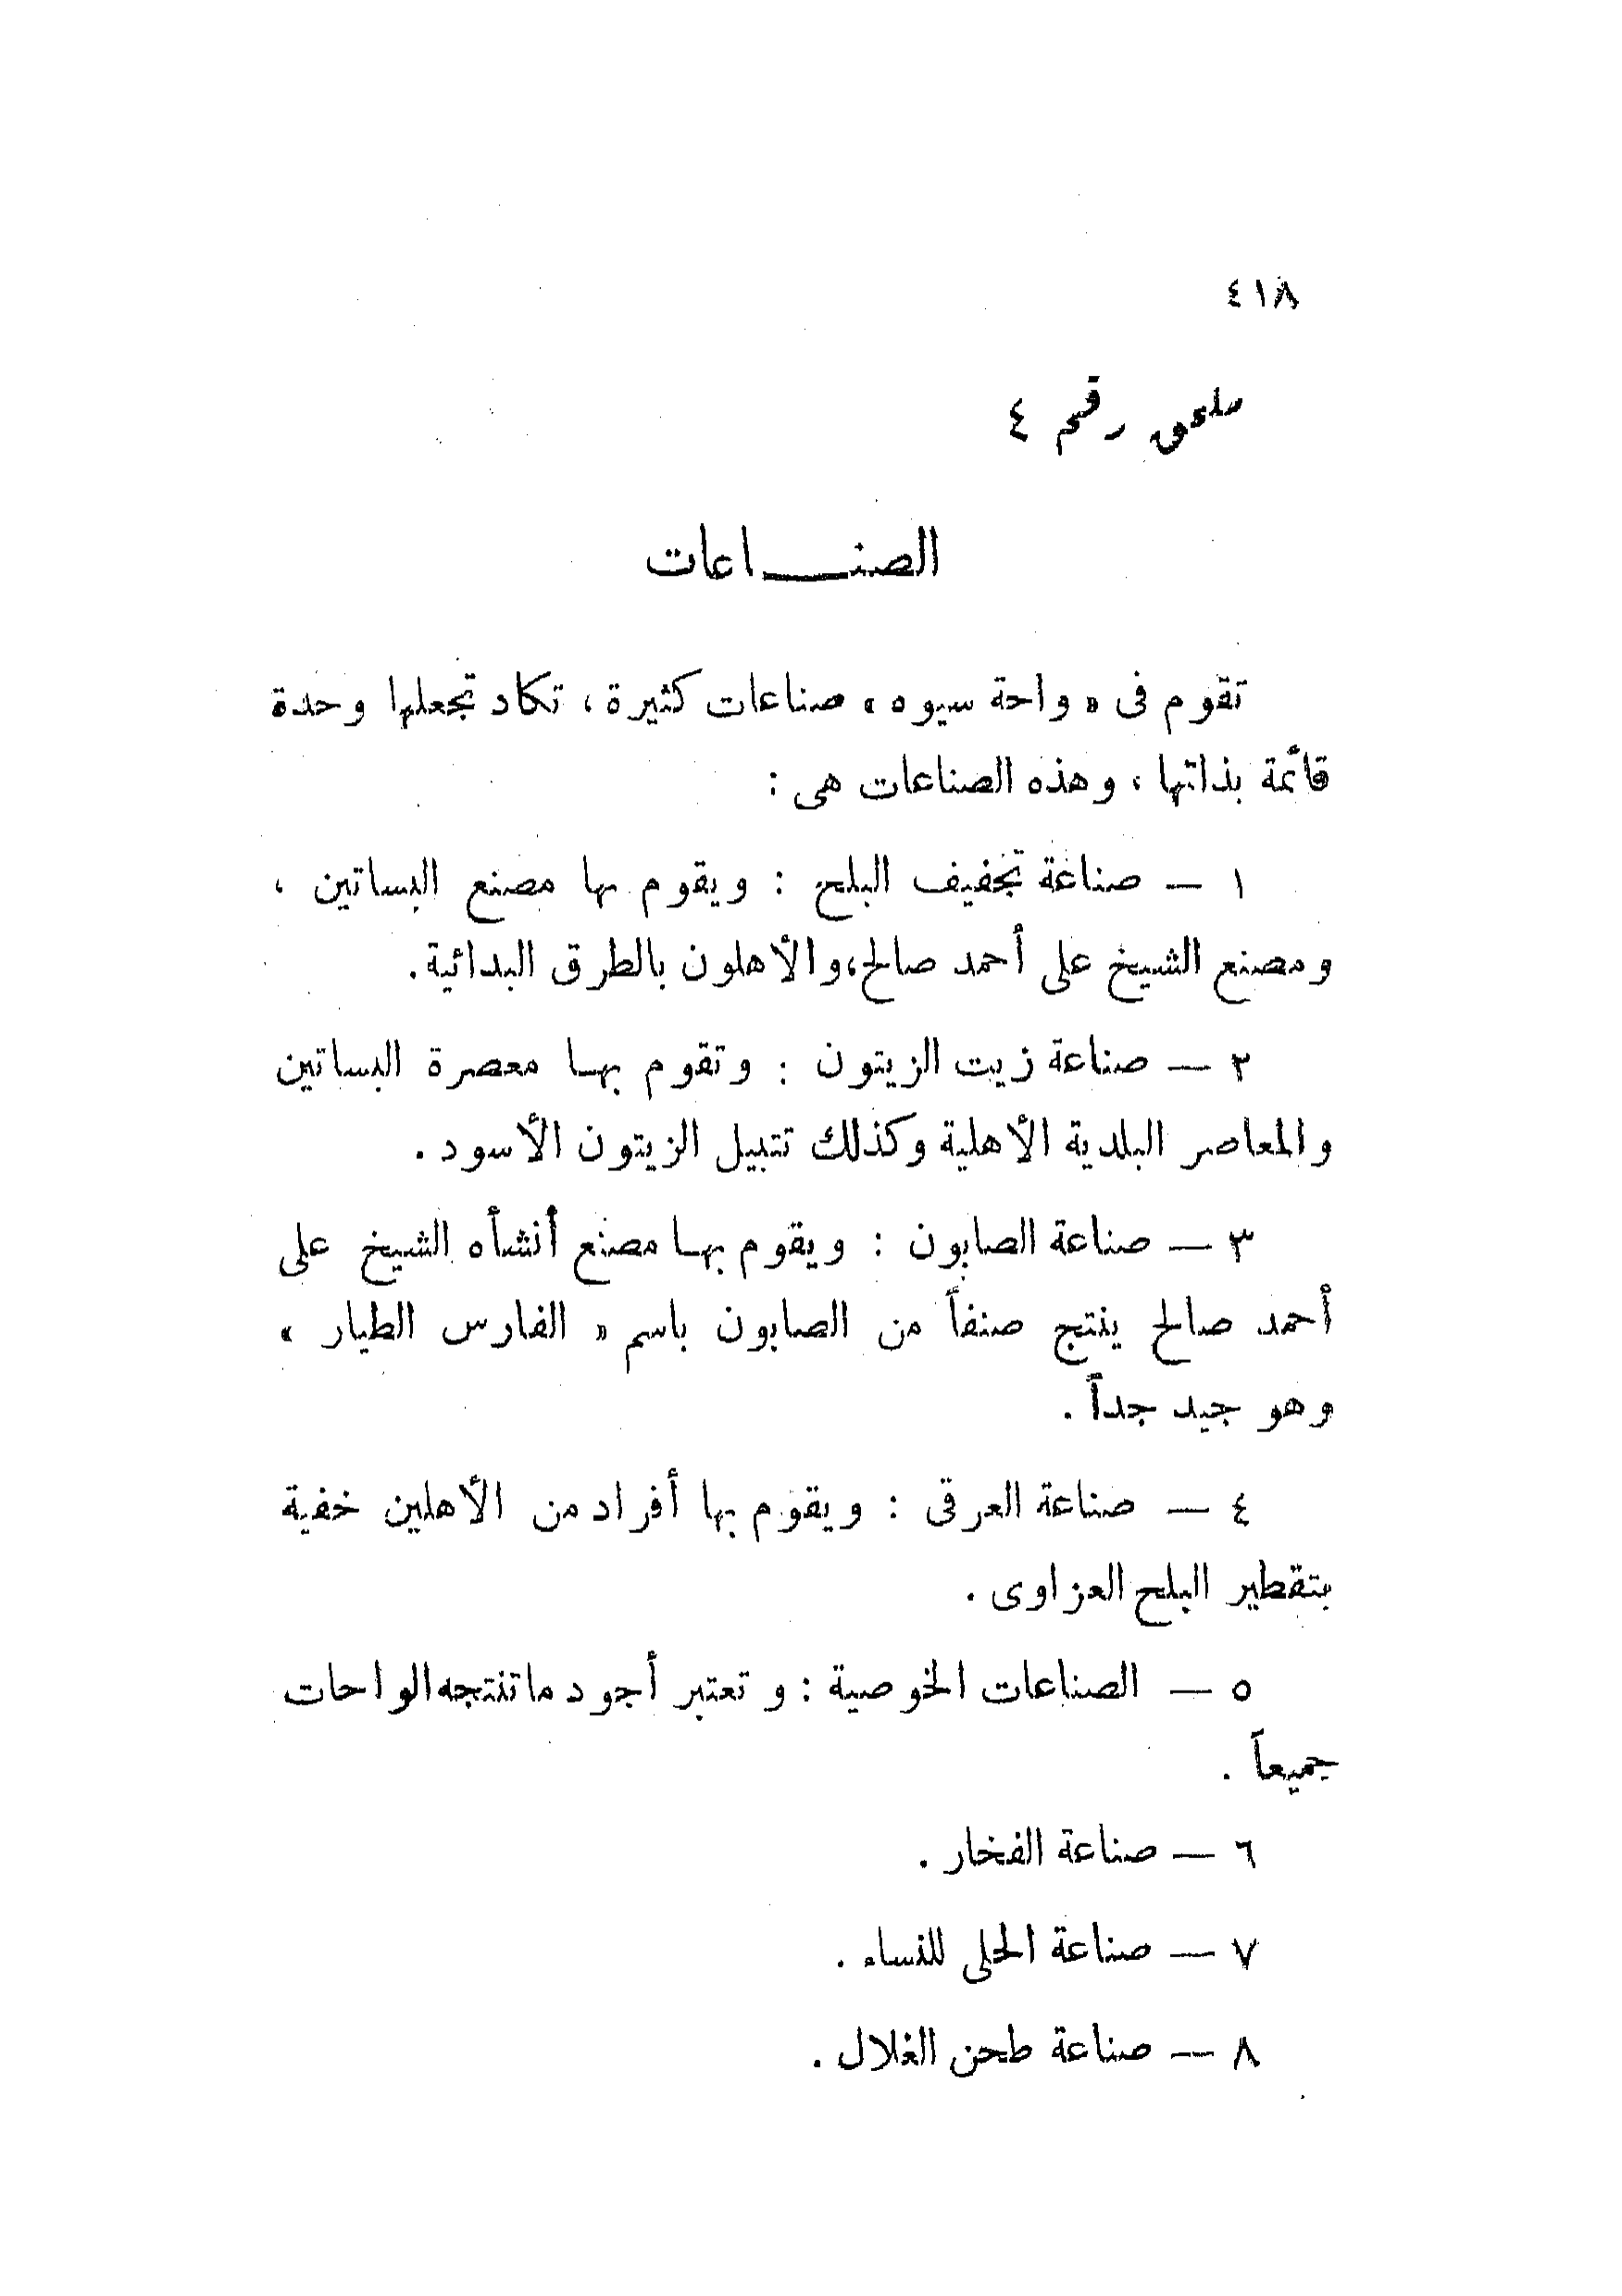 ٤١٨
ملحق رقم ٤
الصنـــاعات
تقوم فى « واحة سيوه » صناعات كثيرة ، تكاد تجعلها وحدة
قائمة بذاتها ، وهذه الصناعات هى :
١ — صناعة تجفيف البلح : ويقوم بها مصنع البساتين ،
ومصنع الشيخ على أحمد صالح ، والأهلون بالطرق البدائية .
٢ — صناعة زيت الزيتون : وتقوم بهـا معصرة البساتين
والمعاصر البلدية الأهلية وكذلك تتبيل الزيتون الأسود .
٣ — صناعة الصابون : ويقوم بهـا مصنع أنشأه الشيخ على
أحمد صالح ينتج صنفاً من الصابون باسم « الفارس الطيار »
وهو جيد جداً .
٤ — صناعة العرقى : ويقوم بها أفراد من الأهلين خفية
بتقطير البلح العزاوى .
٥ — الصناعات الخوصية : وتعتبر أجود ما تنتجه الواحات
جميعاً .
٦ — صناعة الفخار .
٧ — صناعة الحلى للنساء .
٨ — صناعة طحن الغلال .